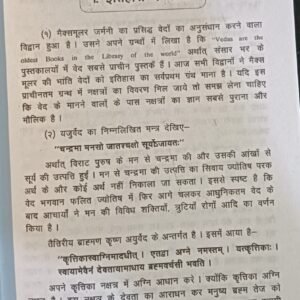 (१) मैक्समूलर जर्मनी का प्रसिद्ध वेदों का अनुसंधान करने वाला
विद्वान हुआ है। उसने अपने ग्रन्थों में लिखा है कि "Vedas are the
oldest Books in the Library of the world" अर्थात् संसार भर के
पुस्तकालयों में वेद सबसे प्राचीन पुस्तकें हैं। आज सभी विद्वानों ने मैक्स
मूलर की भांति वेदों को इतिहास का सर्वप्रथम ग्रंथ माना है। यदि इस
प्राचीनतम ग्रन्थ में नक्षत्रों का विवरण मिल जाये तो समझ लेना चाहिए
कि वेद के मानने वालों के पास नक्षत्रों का ज्ञान सबसे पुराना और
मौलिक है।
(२) यजुर्वेद का निम्नलिखित मन्त्र देखिए-
"चन्द्रमा मनसो जातश्चक्षोः सूर्योऽजायतः"
अर्थात् विराट पुरुष के मन से चन्द्रमा की और उसकी आंखों से
सूर्य की उत्पत्ति हुई। मन से चन्द्रमा की उत्पत्ति का सिवाय ज्योतिष परक
अर्थ के और कोई अर्थ नहीं निकाला जा सकता। इससे स्पष्ट है कि
वेद भगवान फलित ज्योतिष में फिर आगे चलकर आधुनिकतम वेद के
बाद आचार्यों ने मन की विविध शक्तियों, त्रुटियों रोगों आदि का वर्णन
किया है।
तैत्तिरीय ब्राह्मण कृष्ण अयुर्वेद के अन्तर्गत है। इसमें आया है-
"कृत्तिकास्वाग्निमादधीत्। एतद्वा अग्ने नमसत्रम्। यत्कृत्तिकाः।
स्वायाभेवैनं देवतायामाधाय ब्रह्मवर्चसी भवति।
अपने कृत्तिका नक्षत्र में अग्नि आधान करे। क्योंकि कृत्तिका अग्नि
नक्षत्र के देवता का आराधन कर मनुष्य ब्रह्म तेज को